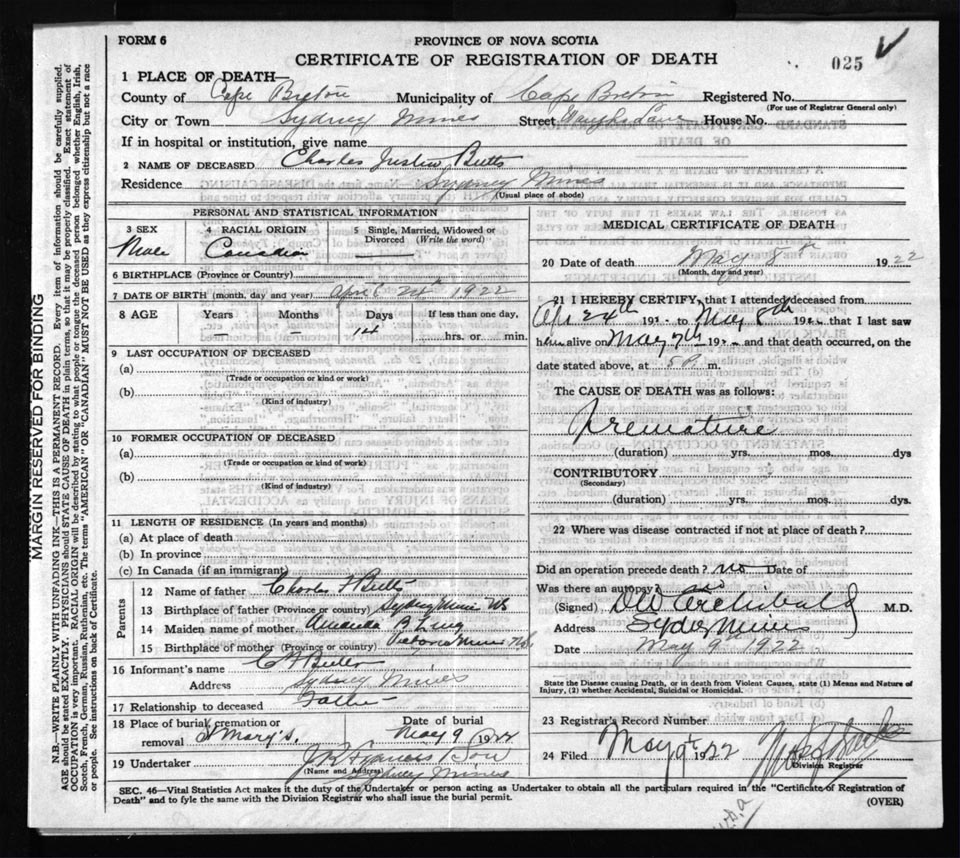 FORM 6
PROVINCE OF NOVA SCOTIA
CERTIFICATE OF REGISTRATION OF DEATH
025
1 PLACE OF DEATH—
County of Cape Breton Municipality of Cape Breton Registered No.
(For use of Registrar General only)
City or Town Sydney Mines Street House No.
If in hospital or institution, give name
2 NAME OF DECEASED Charles Butts
Residence Sydney Mines
(Usual place of abode)
PERSONAL AND STATISTICAL INFORMATION
3 SEX 4 RACIAL ORIGIN 5 Single, Married, Widowed or
Divorced (Write the word)
Male Canadian —
6 BIRTHPLACE (Province or Country)
7 DATE OF BIRTH (month, day and year) April 24th 1922
8 AGE Years Months Days If less than one day,
— — 14 hrs. or min.
9 LAST OCCUPATION OF DECEASED
(a)
(Trade or occupation or kind or work)
(b)
(Kind of industry)
10 FORMER OCCUPATION OF DECEASED
(a)
(Trade or occupation or kind of work)
(b)
(Kind of industry)
11 LENGTH OF RESIDENCE (In years and months)
(a) At place of death
(b) In province
(c) In Canada (if an immigrant)
Parents
12 Name of father Charles H Butts
13 Birthplace of father (Province or country) Sydney Mines NS
14 Maiden name of mother Amanda B
15 Birthplace of mother (Province or country) Mines
16 Informant's name C H Butts
Address Sydney Mines
17 Relationship to deceased Father
18 Place of burial, cremation or Date of burial
removal St Mary's. May 9 1922
19 Undertaker Francis & Son
(Name and Address) Sydney Mines
MEDICAL CERTIFICATE OF DEATH
20 Date of death May 8th 1922
(Month, day and year)
21 I HEREBY CERTIFY, that I attended deceased from
Apr 24th 191 to May 8th 19 that I last saw
him alive on May 7th 19 and that death occurred, on the
date stated above, at 5 P. m.
The CAUSE OF DEATH was as follows:
Premature
(duration) yrs. mos. dys
CONTRIBUTORY
(Secondary)
(duration) yrs. mos. dys.
22 Where was disease contracted if not at place of death?
Did an operation precede death? no Date of
Was there an autopsy? no
(Signed) Archibald M.D.
Address Sydney Mines
Date May 9 1922
State the Disease causing Death, or in death from Violent Causes, state (1) Means and Nature of
Injury, (2) whether Accidental, Suicidal or Homicidal.
23 Registrar's Record Number
24 Filed May 9th 1922
Division Registrar
SEC. 46—Vital Statistics Act makes it the duty of the Undertaker or person acting as Undertaker to obtain all the particulars required in the "Certificate of Registration of
Death" and to fyle the same with the Division Registrar who shall issue the burial permit.
(OVER)
MARGIN RESERVED FOR BINDING
N.B.—WRITE PLAINLY WITH UNFADING INK—THIS IS A PERMANENT RECORD. Every item of information should be carefully supplied.
AGE should be stated EXACTLY. PHYSICIANS should STATE CAUSE OF DEATH in plain terms, so that it may be properly classified. Exact statement of
OCCUPATION is very important. RACIAL ORIGIN will be described by stating to what people or tongue the deceased person belonged whether English, Irish,
Scotch, French, German, Russian, Ruthenian, etc. The terms "AMERICAN" OR "CANADIAN" MUST NOT BE USED as they express citizenship but not a race
or people. See instructions on back of Certificate.